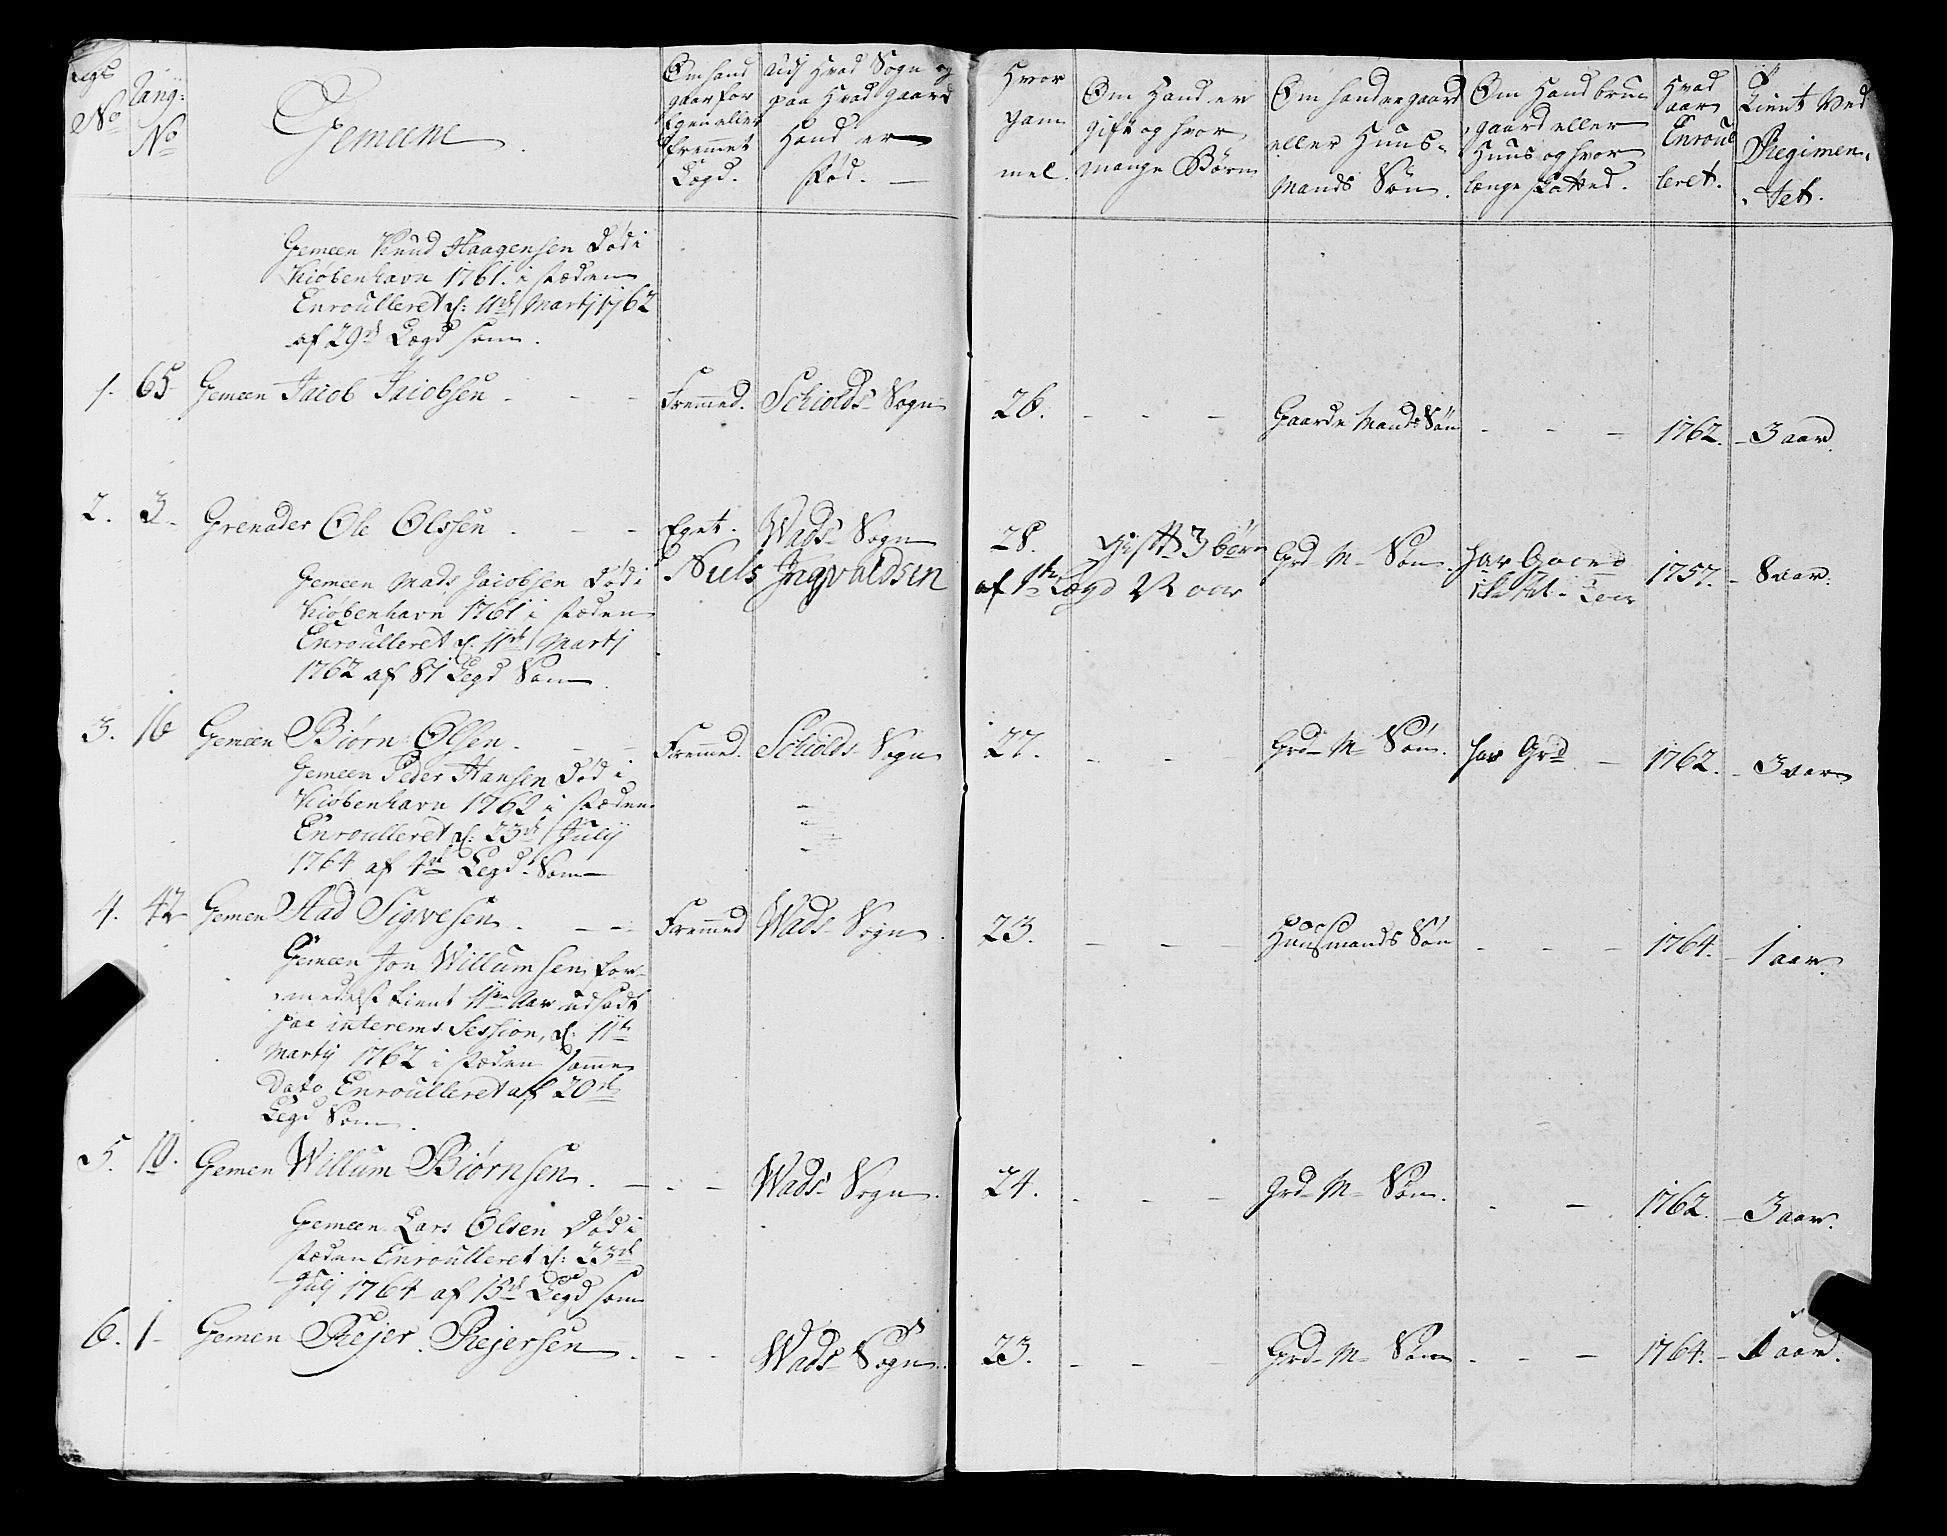 Legd No
Rang: No
Gemeene
Om hand gaar for Egen eller fremmet Lægd.
Udj Hvad Sogn og paa Hvad gaard Hand er Fød.
Hvor gammel.
Om Hand er gift og hvor mange Børn
Om hand er gaard eller Huus-Mands Søn.
Om Hand bruger gaard eller Huus og hvor længe
Hvad aar Enroulleret.
Tient Ved Regimentet.
Gemeen Knud Haagensen Død i
Kiøbenhavn 1761. i stæden
Enroulleret d: 11te Martj 1762
af 29d Lægd som.
1. 65 Gemeen Jacob Jacobsen - Fremmed. Schiolds Sogn 26. - - - Gaarde Mands Søn - - - 1762. - 3 aar.
2. 3 - Grenader Ole Olssen - - Eget. Wads Sogn 28. Gift 3 børn Grd M- Søn. har Gaard 1757. - 8 aar.
Niels Ingvaldsen af 1te Lægd 2 aar
Gemeen Mads Jacobsen Død i
Kiøbenhavn 1761 i stæden
Enroulleret d: 11te Martj
1762 af 81 Legd Som
3. 16 Gemeen Biørn Olsen. - - Fremmed. Schiolds Sogn 27. - - - Grd- M- Søn. har Grd - 1762. - 3 aar
Gemeen Peder Hansen Død i
Kiøbenhavn 1762 i stæden
Enroulleret d: 23de Julij
1764 af 4de Legd Som
4. 42 Gemen Aad Sigvesen. - - Fremmed Wads Sogn. 23. - - - Huusmands Søn - - - 1764. - 1 aar.
Gemeen Jon Willumsen for-
medelst tient 11ve Aar udsadt
paa interems Session, d: 11te
Martij 1762 i stæden samme
Dato Enroulleret af 20de
Legd Som.
5. 10. Gemen Willum Biørnsen. - - - Wads- Sogn. 24. - - - Grd- M- Søn. - - 1762. - 3 aar.
Gemeen Lars Olsen Død i
stæden Enroulleret d: 23de
Julj 1764 af 13d Legd som
6. 1 - Gemen Rejer Rejersen. - - Wads- Sogn. 23. - - Grd- M- Søn - - - 1764. - 1 aar.